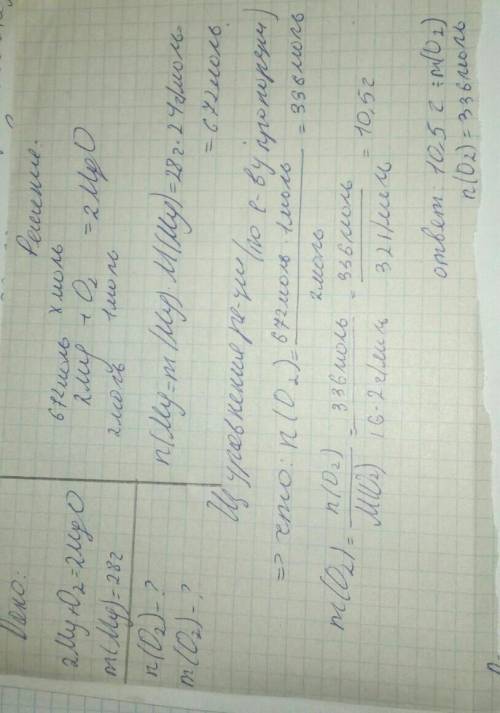 Дано:
2Mg+O₂=2MgO
m(Mg)=28г
n(O₂)-?
m(O₂)-?
Решение:
672моль х моль
2Mg + O₂ = 2MgO
2моль 1моль
n(Mg=m(Mg)·M(Mg)=28г·24г/моль=
=672моль.
Из уравнения р-ции (по с-ву пропорции)
=> что: n(O₂)= 672моль·1моль / 2моль =336моль
m(O₂)= n(O₂) / M(O₂) = 336моль / 16·2г/моль = 336моль / 32г/моль = 10,5г
ответ: 10,5г =m(O₂)
n(O₂)=336моль